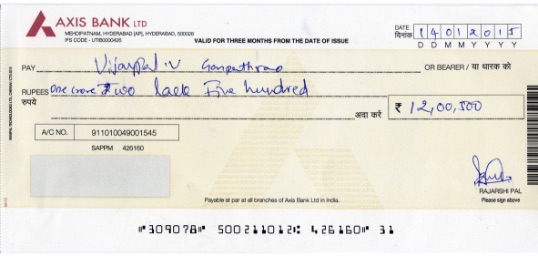 AXIS BANK LTD
MEHDIPATNAM, HYDERABAD [AP], HYDERABAD, 500028
IFS CODE - UTIB0000426
VALID FOR THREE MONTHS FROM THE DATE OF ISSUE
DATE
दिनांक
14012015
D D M M Y Y Y Y
PAY Vijaypal.v Ganpathrao OR BEARER / या धारक को
RUPEES One crore Two lack Five hundred
रुपये
अदा करें ₹ 12,00,500
A/C NO. 911010049001545
SAPPM 426160
RAJARSHI PAL
Please sign above
Payable at par at all branches of Axis Bank Ltd in India.
⑈309078⑈ 500211012⑆ 426160⑈ 31